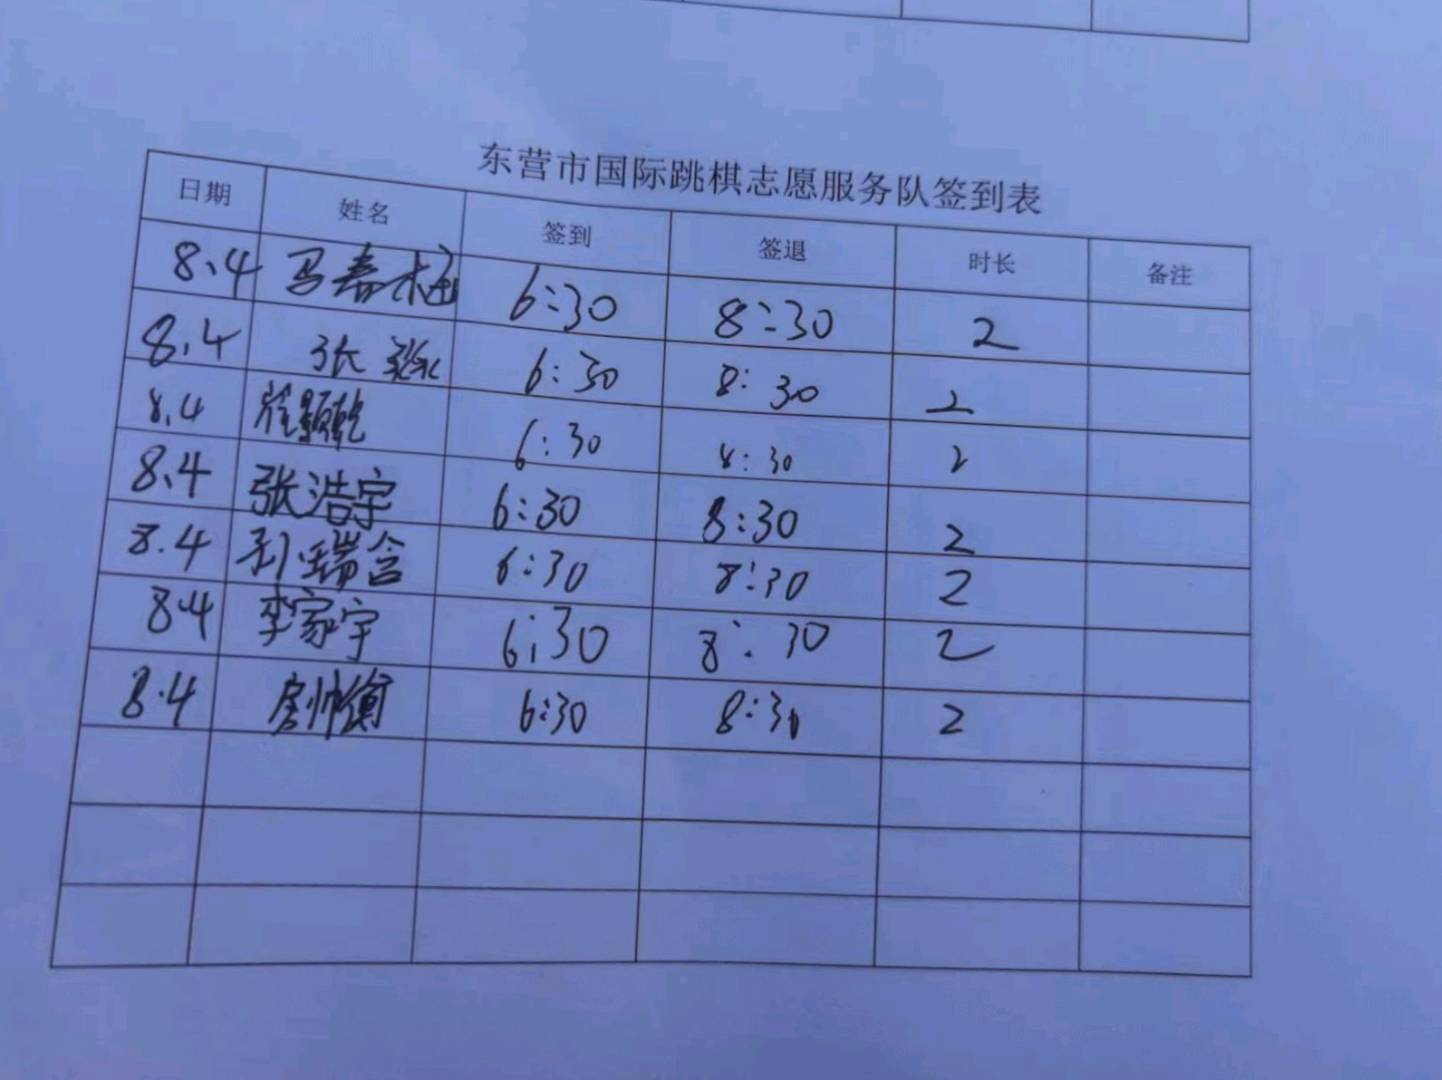 东营市国际跳棋志愿服务队签到表
日期 姓名 签到 签退 时长 备注
8.4 马春梅 6:30 8:30 2
8.4 张 6:30 8:30 2
8.4 6:30 8:30 2
8.4 张浩宇 6:30 8:30 2
8.4 孙瑞含 6:30 8:30 2
8.4 李家宇 6:30 8:30 2
8.4 帅衡 6:30 8:30 2